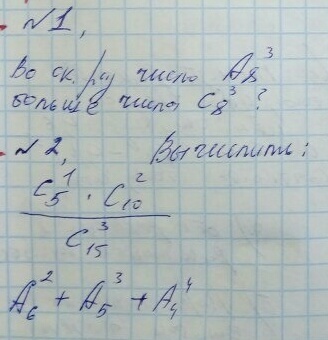 №1,
Во ск. раз число A₈³
больше числа C₈³?
№2, Вычислить:
C₅¹ · C₁₀²
C₁₅³
A₆² + A₅³ + A₄⁴